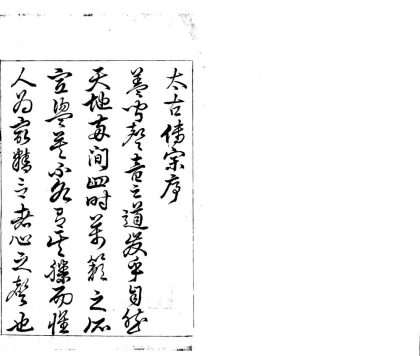 太古傳宗序
蓋聞聲音之道發乎自然
天地兩間四時萬籟之所
宣盪莫不各有其勝而惟
人為最精言者心之聲也